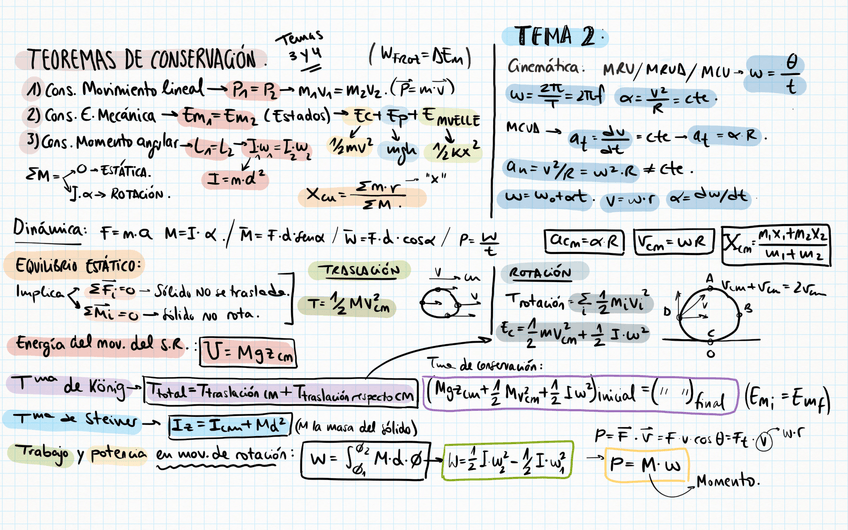 TEOREMAS DE CONSERVACIÓN. Temas 3 y 4 (W_FROZ = ΔEm)
1) Cons. Movimiento lineal → P₁ = P₂ → m₁v₁ = m₂v₂. (P⃗ = m·v⃗)
2) Cons. E. Mecánica → Em₁ = Em₂ (Estados) → Ec + Ep + E MUELLE
½mv² mgh ½Kx²
3) Cons. Momento angular → L₁ = L₂ → I·ω = I·ω
I = m·d²
ΣM = 0 → ESTÁTICA.
I·α → ROTACIÓN.
Xcm = Σm·r / ΣM. → "x"
TEMA 2.
Cinemática. MRV / MRUA / MCU → ω = θ/t
ω = 2π/T = 2πf α = v²/R = cte.
MCUA → at = dv/dt = cte → at = α R.
an = v²/R = ω²·R ≠ cte.
ω = ω₀ + αt. v = ω·r α = dω/dt
Dinámica: F = m·a M = I·α. / M̄ = F·d·senα / W̄ = F·d·cosα / P = W/t
acm = αR Vcm = ωR Xcm = m₁x₁ + m₂x₂ / m₁ + m₂
EQUILIBRIO ESTÁTICO:
Implica ΣF⃗i = 0 → Sólido NO se traslada.
ΣM⃗i = 0 → Sólido no rota.
TRASLACIÓN
T = ½ MV²cm
V cm
V
V
ROTACIÓN
Trotación = Σi ½ miVi²
Ec = ½ mV²cm + ½ I·ω²
A Vcm + Vcm = 2Vcm
D V B
C
O
Energía del mov. del S.R.: U = Mgzcm
Tma de conservación:
Tma de König → Ttotal = Ttraslación CM + Ttraslación respecto CM (Mgzcm + ½ Mv²cm + ½ Iω²)inicial = (" ")final (Emi = Emf)
Tma de Steiner → Iz = Icm + Md² (M la masa del sólido)
Trabajo y potencia en mov. de rotación: W = ∫ϕ₁^ϕ₂ M·d·ϕ → W = ½ I·ω₂² − ½ I·ω₁²
P = F⃗·V⃗ = F·v cos θ = Ft·v → ω·r
→ P = M·ω
Momento.